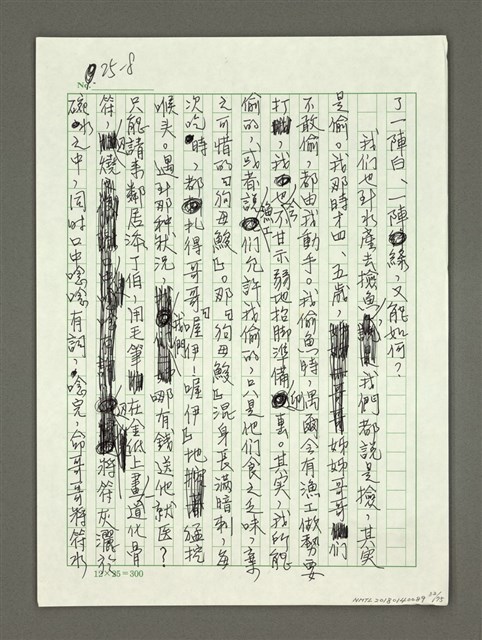 9. 25-8
No.
了一陣白、一陣綠，又能如何？
我们也到水產去撿魚，我們都說是撿，其实
是偷。我那時才四、五歲，姊姊哥哥们
不敢偷，都由我動手。我偷魚時，偶爾会有漁工做勢要
打，我也会不甘示弱地抬脚準備迎裏。其实，我所能
偷的，或者說漁工们允許我偷的，只是他们食之乏味，棄
之可惜的「狗母鮻」。那「狗母鮻」混身長滿暗刺，每
次吃時，都扎得哥哥「喔伊！喔伊」地猛挖
喉头。遇到那种狀況，我們哪有錢送他就医？
只能請來鄰居添丁伯，用毛筆在金纸上畫道化骨
符，燒，將符灰灑於
碗水之中，同时口中唸唸有詞，唸完，命哥哥將符水
12×25=300
NMTL20180140089 32/175